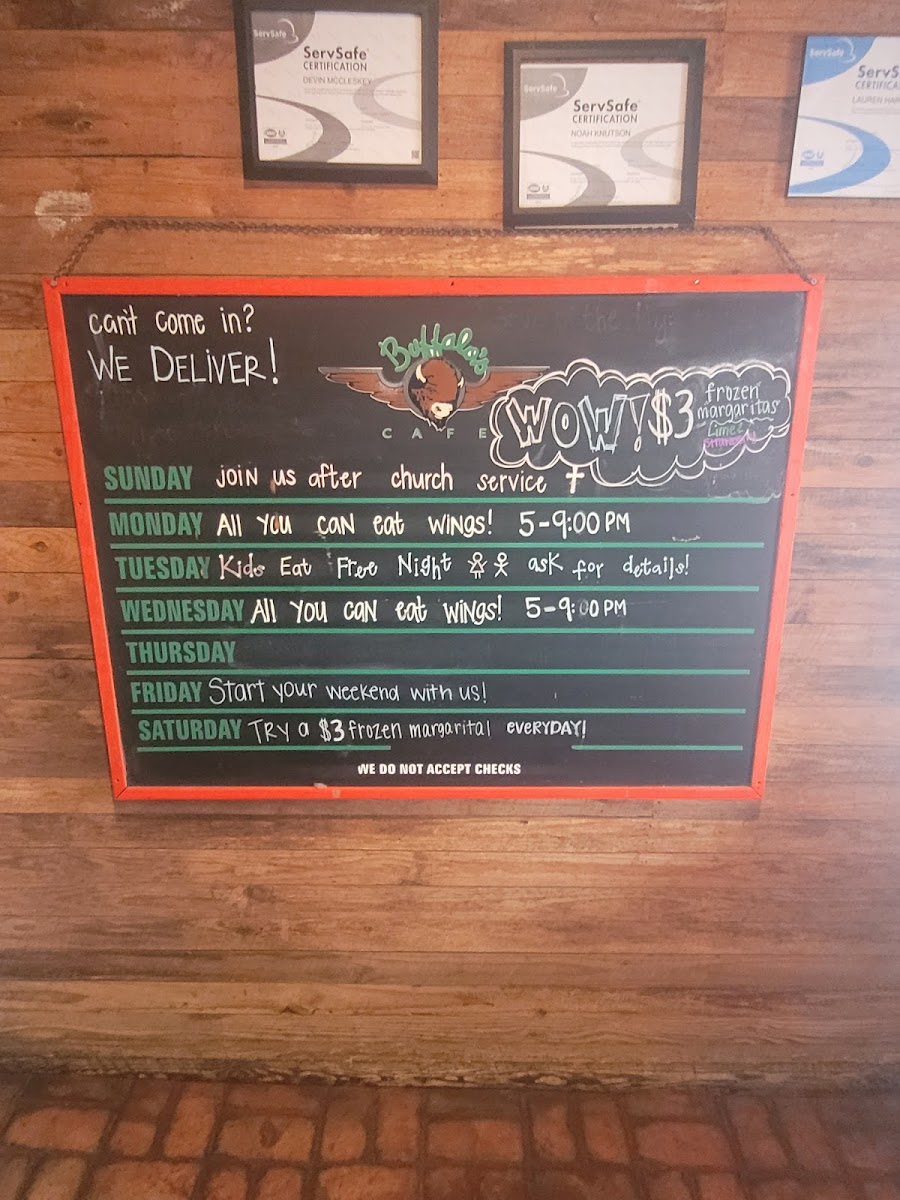 ServSafe
ServSafe®
CERTIFICATION
DEVIN MCCLESKEY
ServSafe
ServSafe®
CERTIFICATION
NOAH KNUTSON
ServSafe
ServS
CERTIFICA
LAUREN HAR
can't come in?
WE DELIVER!
Buffalo's
CAFE
WOW! $3 frozen
margaritas
Lime &
SUNDAY JOIN US after church service
MONDAY All YOU CAN eat WINGS! 5-9:00 PM
TUESDAY Kids Eat Free Night ask for details!
WEDNESDAY All YOU CAN eat WINGS! 5-9:00 PM
THURSDAY
FRIDAY Start your weekend with us!
SATURDAY TRY a $3 frozen margarital EVERYDAY!
WE DO NOT ACCEPT CHECKS